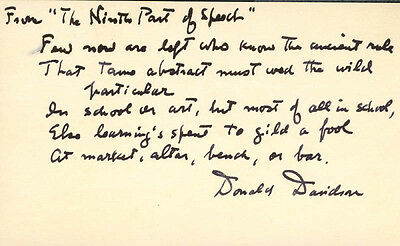 From "The Ninth Part of Speech"
Few now are left who know the ancient rule
That Tame abstract must wed the wild
particular
In school or art, but most of all in school,
Else learning's spent to gild a fool
At market, altar, bench, or bar.
Donald Davidson